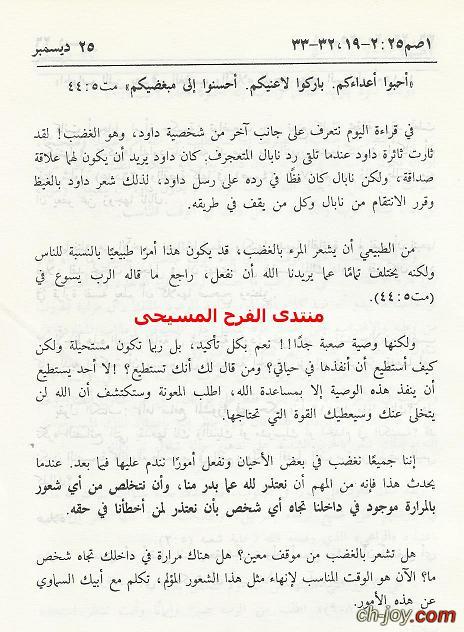 ١صم٢:٢٥-١٩، ٣٢-٣٣ ٢٥ ديسمبر
«أحبوا أعداءكم. باركوا لاعنيكم. أحسنوا إلى مبغضيكم» مت٤٤:٥
في قراءة اليوم نتعرف على جانب آخر من شخصية داود، وهو الغضب! لقد
ثارت ثائرة داود عندما تلقى رد نابال المتعجرف. كان داود يريد أن يكون لهما علاقة
صداقة، ولكن نابال كان فظًا في رده على رسل داود، لذلك شعر داود بالغيظ
وقرر الانتقام من نابال وكل من يقف في طريقه.
من الطبيعي أن يشعر المرء بالغضب، قد يكون هذا أمرًا طبيعيًا بالنسبة للناس
ولكنه يختلف تمامًا عما يريدنا الله أن نفعل، راجع ما قاله الرب يسوع في
(مت٤٤:٥).
منتدى الفرح المسيحى
ولكنها وصية صعبة جدًا!!! نعم بكل تأكيد، بل ربما تكون مستحيلة ولكن
كيف أستطيع أن أنفذها في حياتي؟ ومن قال لك أنك تستطيع؟ !لا أحد يستطيع
أن ينفذ هذه الوصية إلا بمساعدة الله، اطلب المعونة وستكتشف أن الله لن
يتخلى عنك وسيعطيك القوة التي تحتاجها.
إننا جميعًا نغضب في بعض الأحيان ونفعل أمورًا نندم عليها فيما بعد. عندما
يحدث هذا فإنه من المهم أن نعتذر لله عما بدر منا، وأن نتخلص من أي شعور
بالمرارة موجود في داخلنا تجاه أي شخص بأن نعتذر لمن أخطأنا في حقه.
هل تشعر بالغضب من موقف معين؟ هل هناك مرارة في داخلك تجاه شخص
ما؟ الآن هو الوقت المناسب لإنهاء مثل هذا الشعور المؤلم، تكلم مع أبيك السماوي
عن هذه الأمور.
ch-joy.com